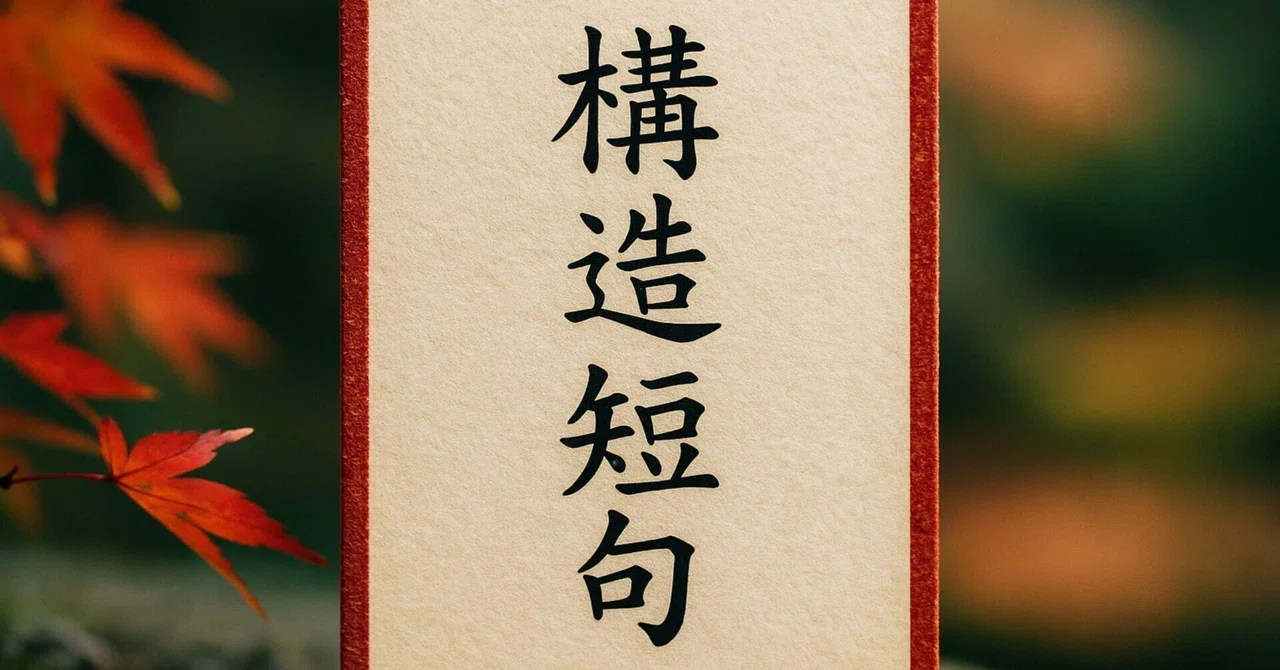 構造短句